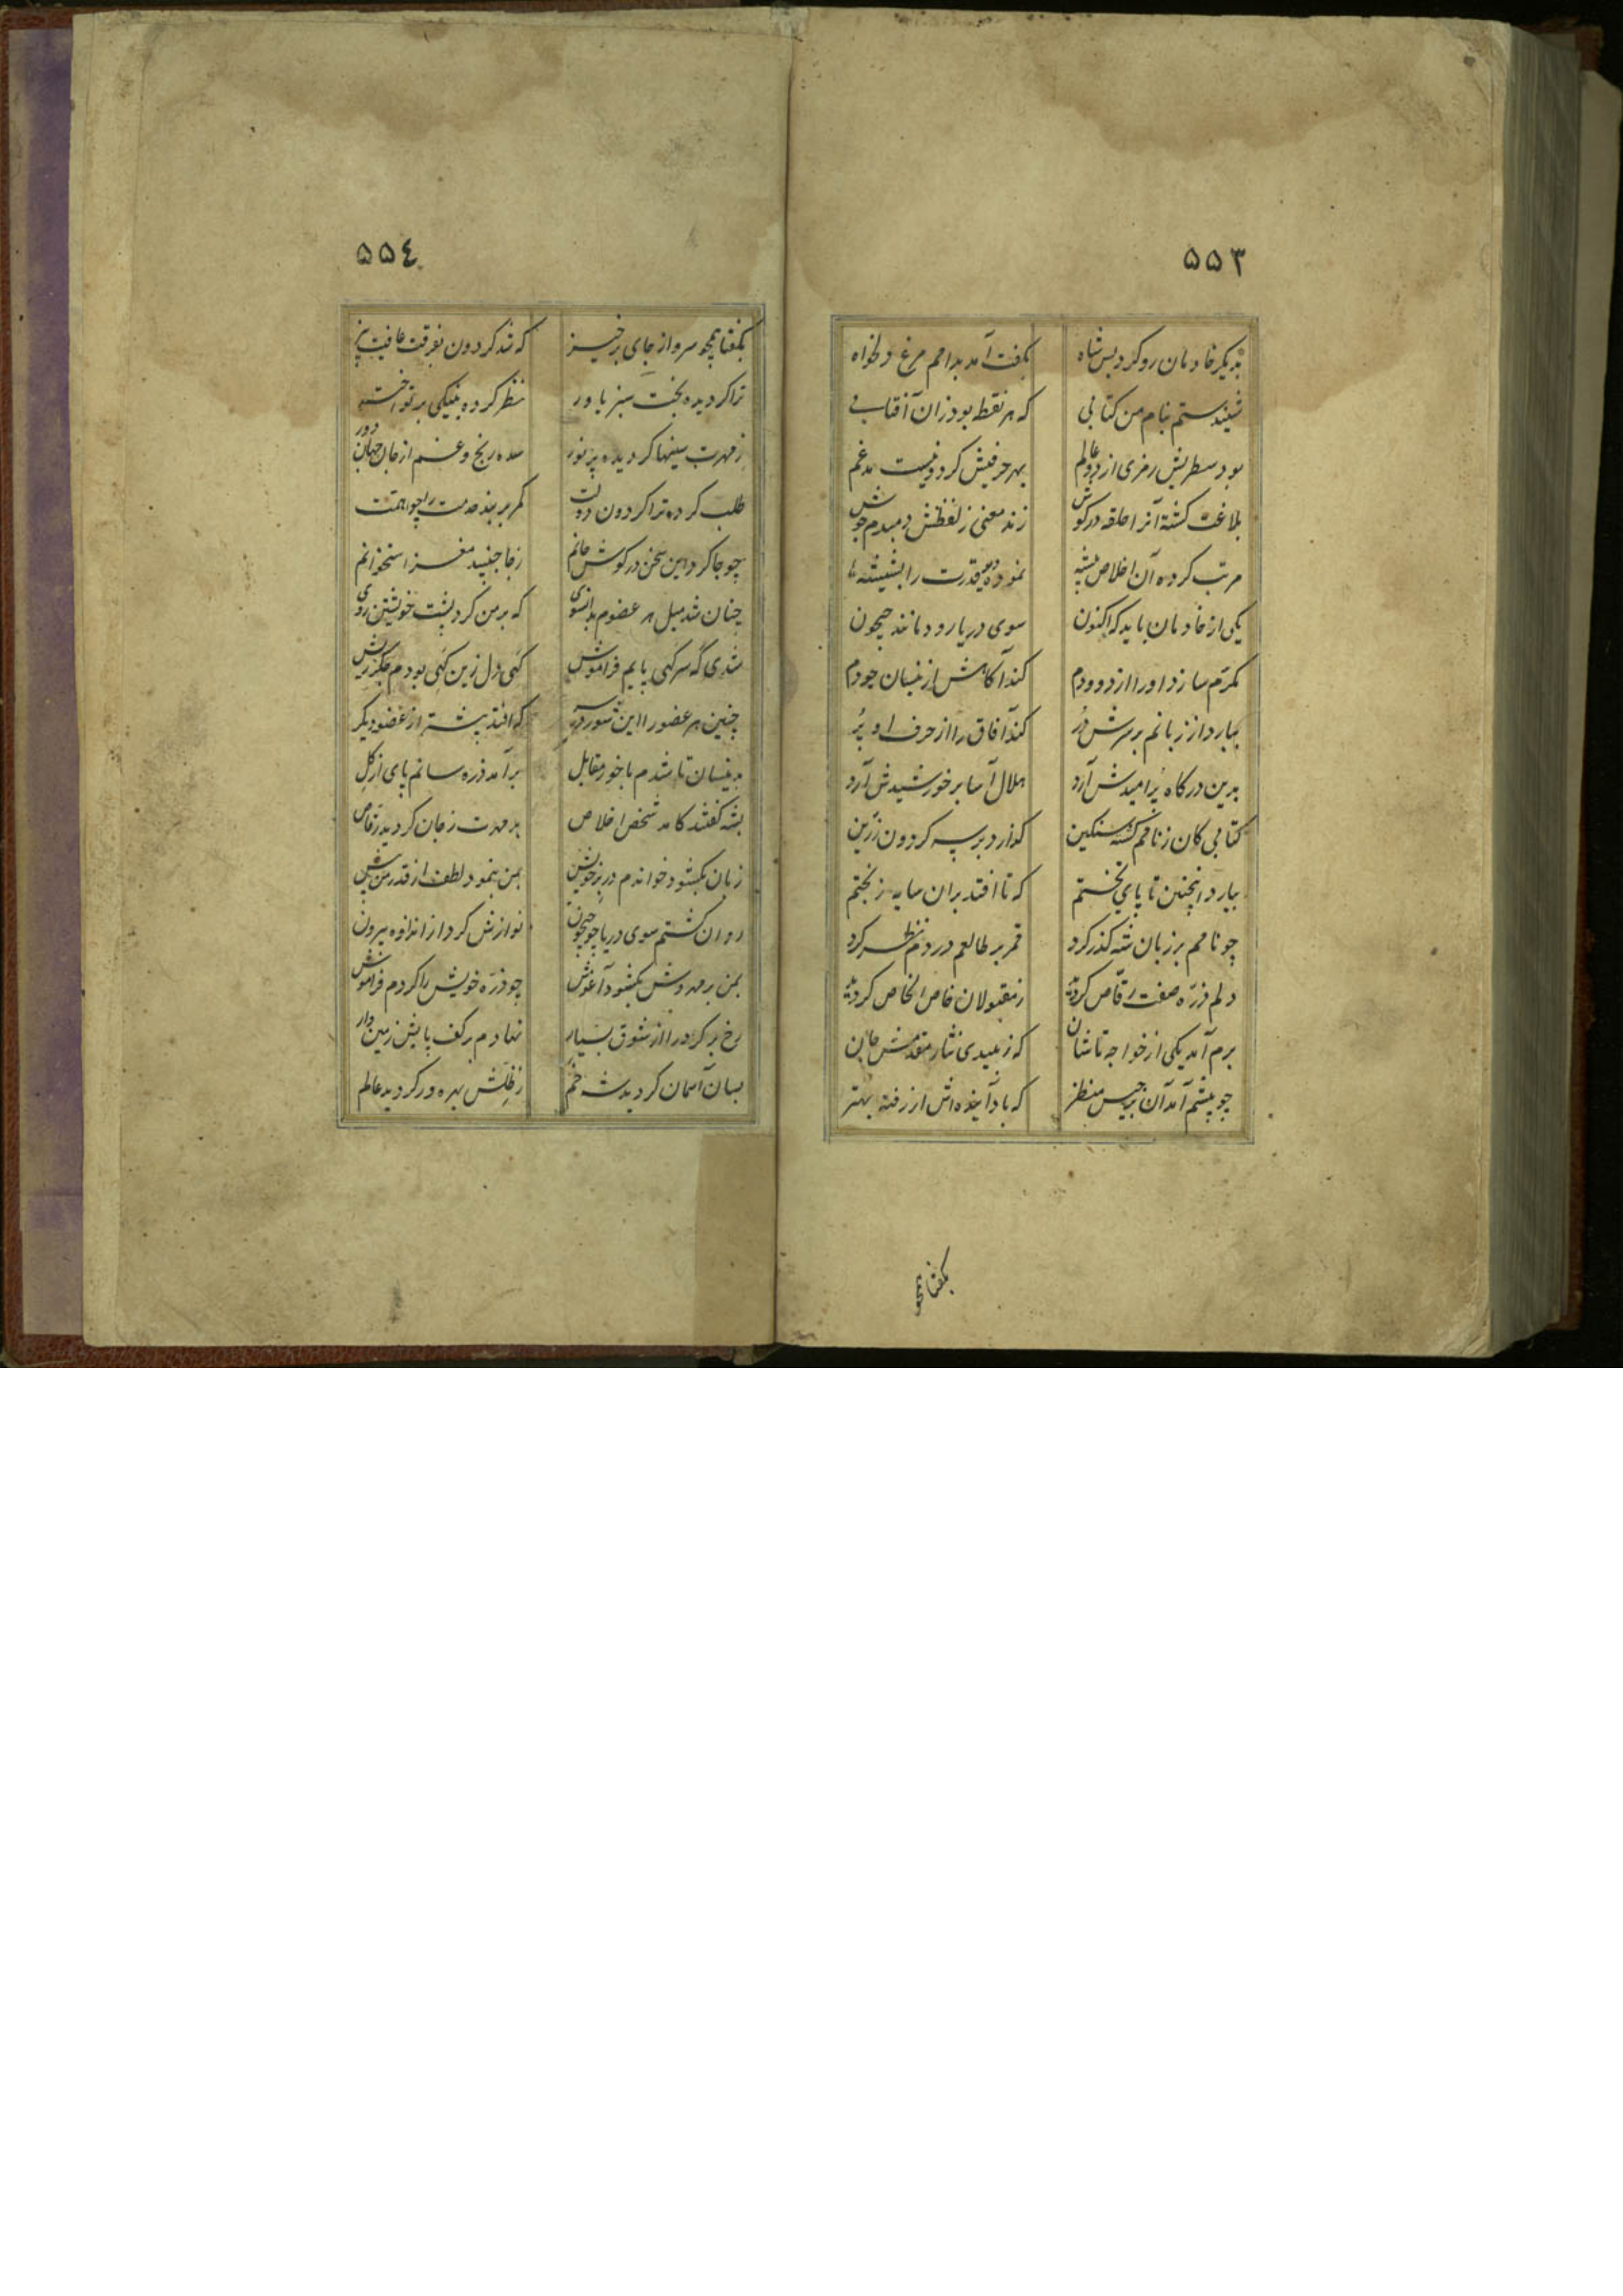 ۵۵۳
بدیگر خادمان رو کرد پس شاه بگفت آمد بدامم مرغ دلخواه
شنیدستم بنام من کتابی که هر نقط بود زان آفتابی
بود سطریش رمزی از دو عالم بهر حرفیش کردونیست مدغم
بلاغت کشته آنرا حلقه در کوش زند معنی ز لفظش دمبدم جوش
مرتب کرده آن اخلاص پیشه نموده می قدرت را بشیشه
یکی از خادمان باید که اکنون سوی دریا رود مانند جیحون
مکرم سازد او را از درودم کند آکاهش از نیسان جودم
بهارد از زبانم بر سرش در کند آفاق را از حرف او پر
بدین درکاه پر امیدش آرد هلال آسا بر خورشیدش آرد
کتابی کان ز نامم کشته سنکین کذارد بر سه کردون زرین
بیارد اینچنین تا پای تختم که تا افتد بران سایه ز بختم
چو نامم بر زبان شه کذر کرد قمر بر طالعم در دم نظر کرد
دلم ذره صفت رقاص کردید ز مقبولان خاص الخاص کردید
برم آمد یکی از خواجه تاشان که زیبیدی نثار مقدمش جان
چو پیشم آمد آن برجیس منظر که باد آینده اش از رفته بهتر
بگفتا همچو
۵۵٤
بگفتا همچو سرو از جای برخیز که شد کردون بفرقت عافیت بیز
ترا کردیده بخت سبز یاور نظر کرده بنیکی بر تو اختر
ز مهرت سینها کردیده پر نور شده رنج و غم از جان جهان دور
طلب کرده ترا کردون دولت کمر بر بند خدمت را چو همت
چو جا کرد این سخن در کوش جانم ز جا جنبید مغز استخوانم
چنان شد میل هر عضوم بدانسوی که بر من کرد پشت خویشتن روی
شدی که سر کهی پایم فراموش کهی دل زین کهی بودم جکر ریش
چنین هر عضو را این شور در سر که افتد پیشتر از عضو دیکر
بدینسان تا شدم با خور مقابل برآمد ذره سانم پای از کل
بشه گفتند کامد شخص اخلاص بر مهرت ز جان کردید رقاص
زبان بکشود خواندم در بر خویش بمن بنمود لطف از قدر من بیش
روان کشتم سوی دریا چو جیحون نوازش کرد از اندازه بیرون
بمن بر مهروش بکشود آغوش چو ذره خویش را کردم فراموش
رخ بر کرد را از شوق بسیار نهادم بر کف پایش زمین وار
بسان آسمان کردید شه خم ز ظلش بهره ور کردید عالم